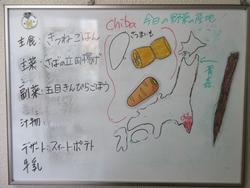 Chiba 今日の野菜の産地
主食：きつねごはん
さつまいも
主菜：さばの立田揚げ
副菜：五目きんぴらごぼう
青森
汁物：
デザート：スイートポテト
牛乳